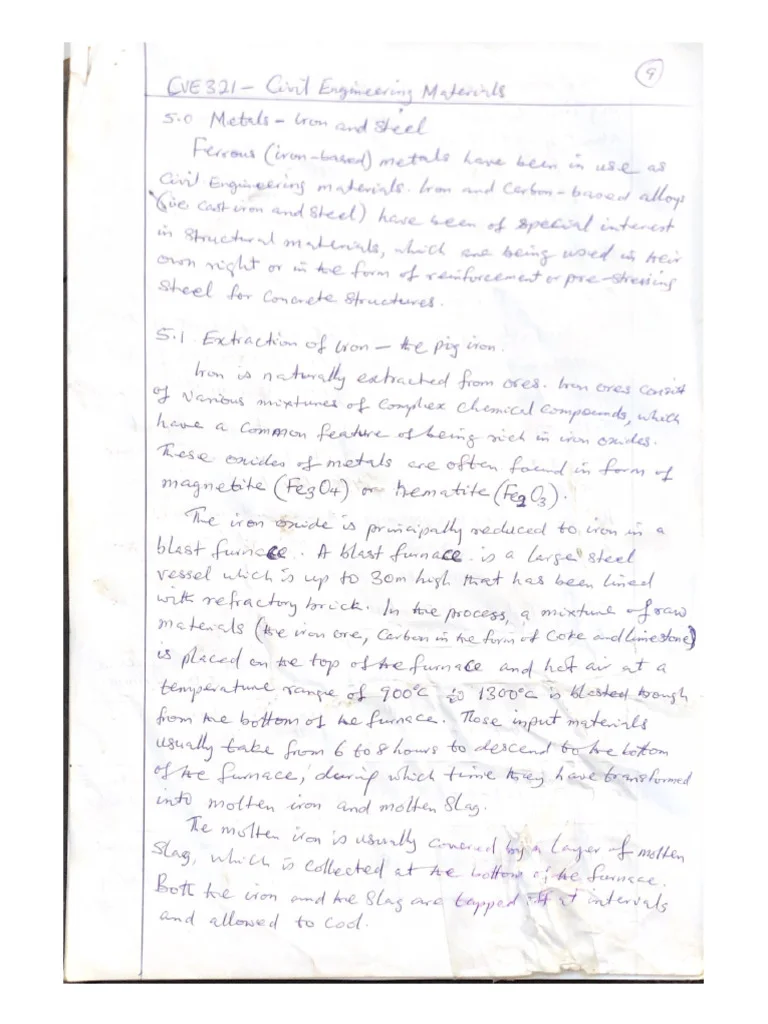 9
CVE321 – Civil Engineering Materials
5.0 Metals – Iron and Steel
Ferrous (iron-based) metals have been in use as
Civil Engineering materials. Iron and Carbon-based alloys
(ie cast iron and Steel) have been of special interest
in structural materials, which are being used in their
own right or in the form of reinforcement or pre-stressing
steel for concrete structures.
5.1 Extraction of Iron – the pig iron.
Iron is naturally extracted from ores. Iron ores consist
of various mixtures of complex chemical compounds, which
have a common feature of being rich in iron oxides.
These oxides of metals are often found in form of
magnetite (Fe3O4) or hematite (Fe2O3).
The iron oxide is principally reduced to iron in a
blast furnace. A blast furnace is a large steel
vessel which is up to 30m high that has been lined
with refractory brick. In the process, a mixture of raw
materials (the iron ore, Carbon in the form of Coke and limestone)
is placed on the top of the furnace and hot air at a
temperature range of 900°C to 1300°C is blasted trough
from the bottom of the furnace. Those input materials
usually take from 6 to 8 hours to descend to the bottom
of the furnace, during which time they have transformed
into molten iron and molten slag.
The molten iron is usually covered by a layer of molten
slag, which is collected at the bottom of the furnace.
Both the iron and the slag are tapped off at intervals
and allowed to cool.